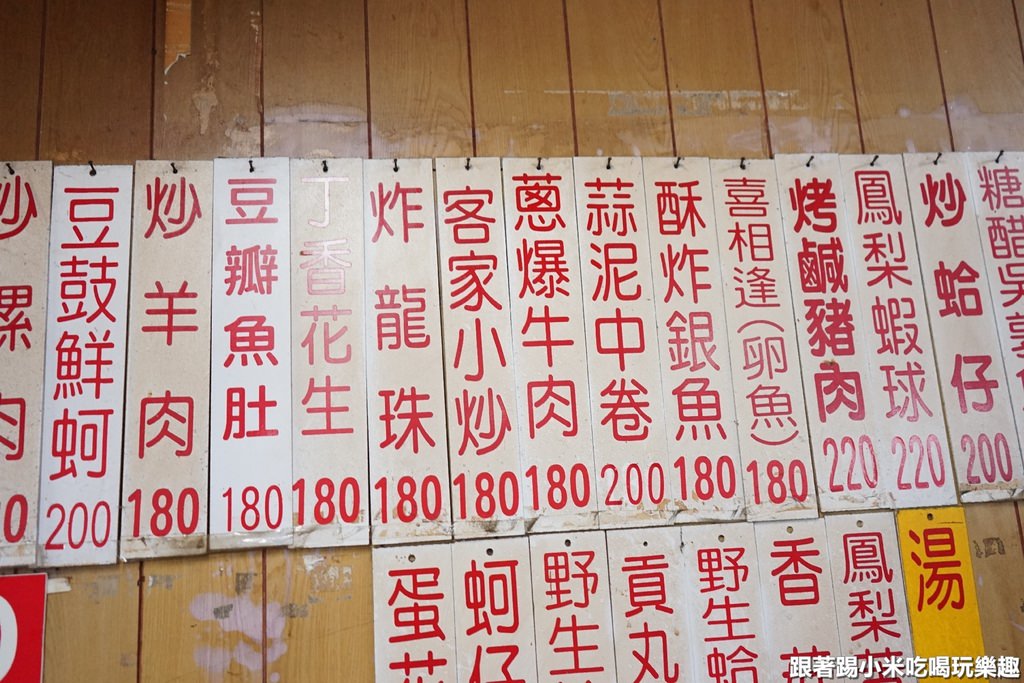 豆鼓鮮蚵200
炒羊肉180
豆瓣魚肚180
丁香花生180
炸龍珠180
客家小炒180
蔥爆牛肉180
蒜泥中卷200
酥炸銀魚180
喜相逢(卵魚)180
烤鹹豬肉220
鳳梨蝦球220
炒蛤仔200
糖醋吳郭
蛋花
蚵仔
野生
貢丸
野生蛤
香菇
鳳梨
湯
跟著踢小米吃喝玩樂趣